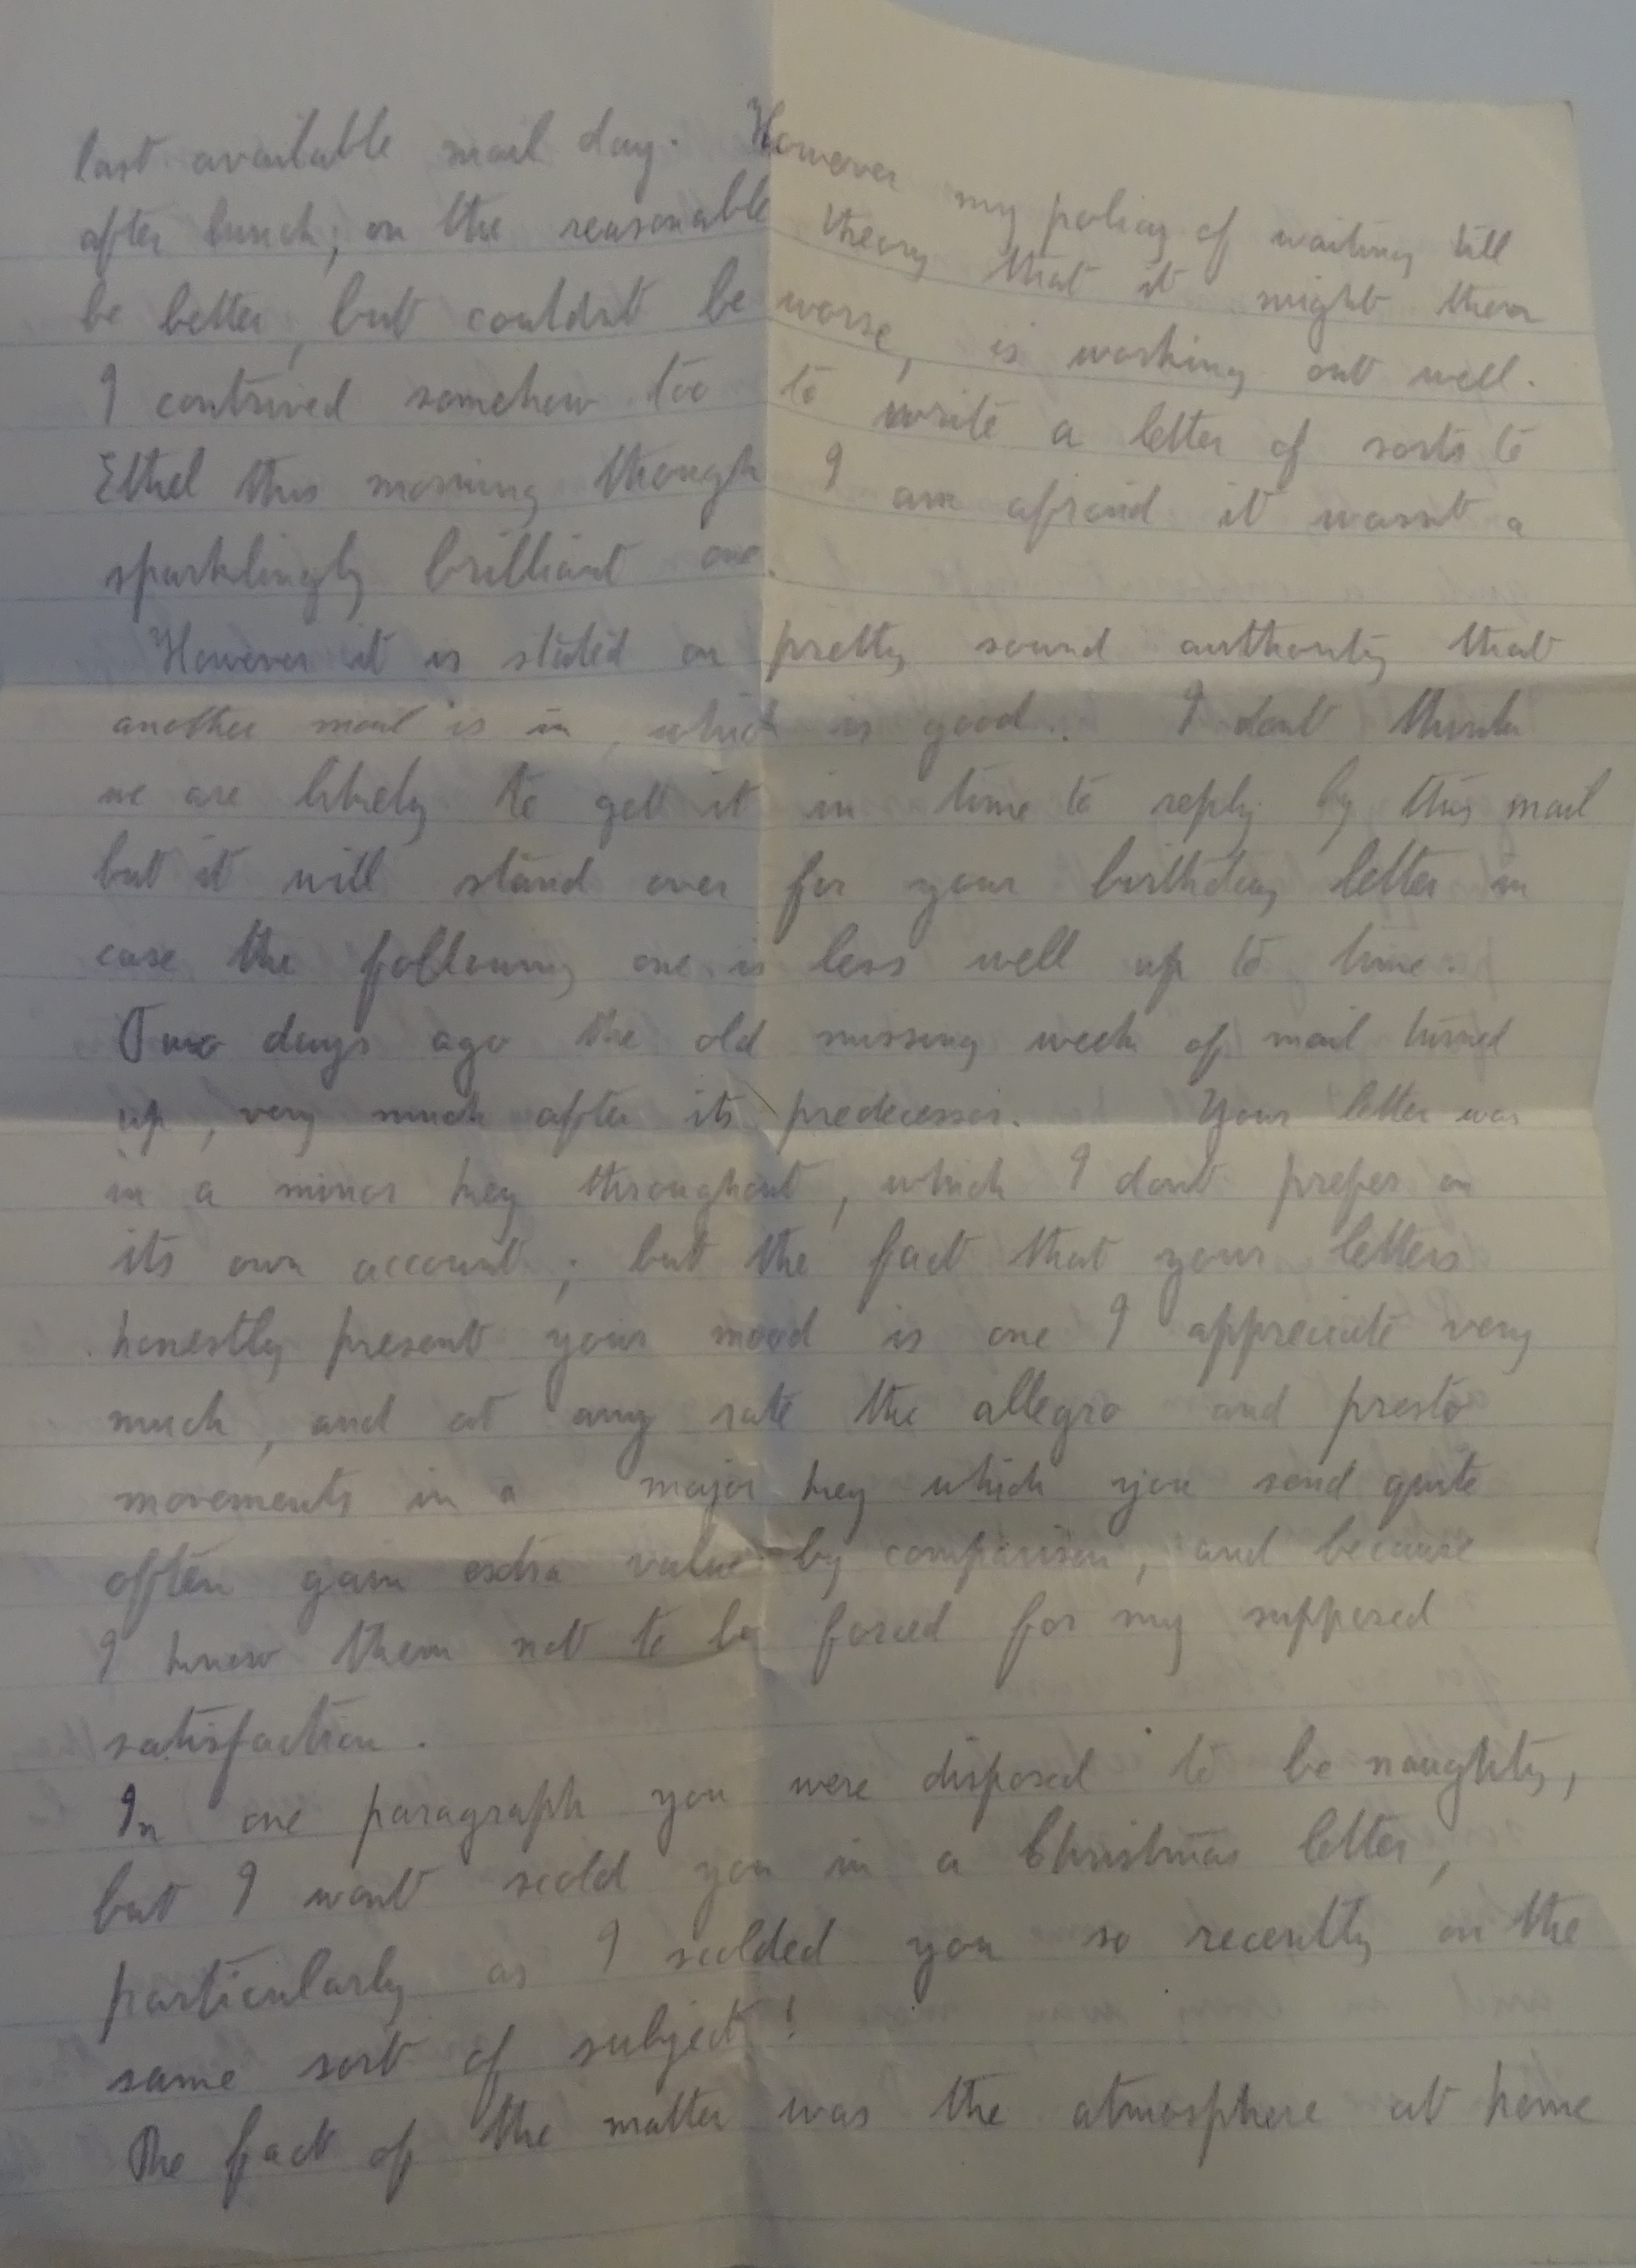 last available mail day. However my policy of waiting till
after lunch, on the reasonable theory that it might then
be better, but couldnt be worse, is working out well.
I contrived somehow too to write a letter of sorts to
Ethel this morning though I am afraid it wasnt a
sparklingly brilliant one.
However it is stated on pretty sound authority that
another mail is in, which is good. I dont think
we are likely to get it in time to reply by this mail
but it will stand over for your birthday letter in
case the following one is less well up to time.
Two days ago the old missing week of mail turned
up, very much after its predecessor. Your letter was
in a minor key throughout, which I dont prefer on
its own account; but the fact that your letters
honestly present your mood is one I appreciate very
much, and at any rate the allegro and presto
movements in a major key which you send quite
often gain extra value by comparison, and because
I know them not to be forced for my supposed
satisfaction.
In one paragraph you were disposed to be naughty,
but I wont scold you in a Christmas letter,
particularly as I scolded you so recently on the
same sort of subject!
The fact of the matter was the atmosphere at home